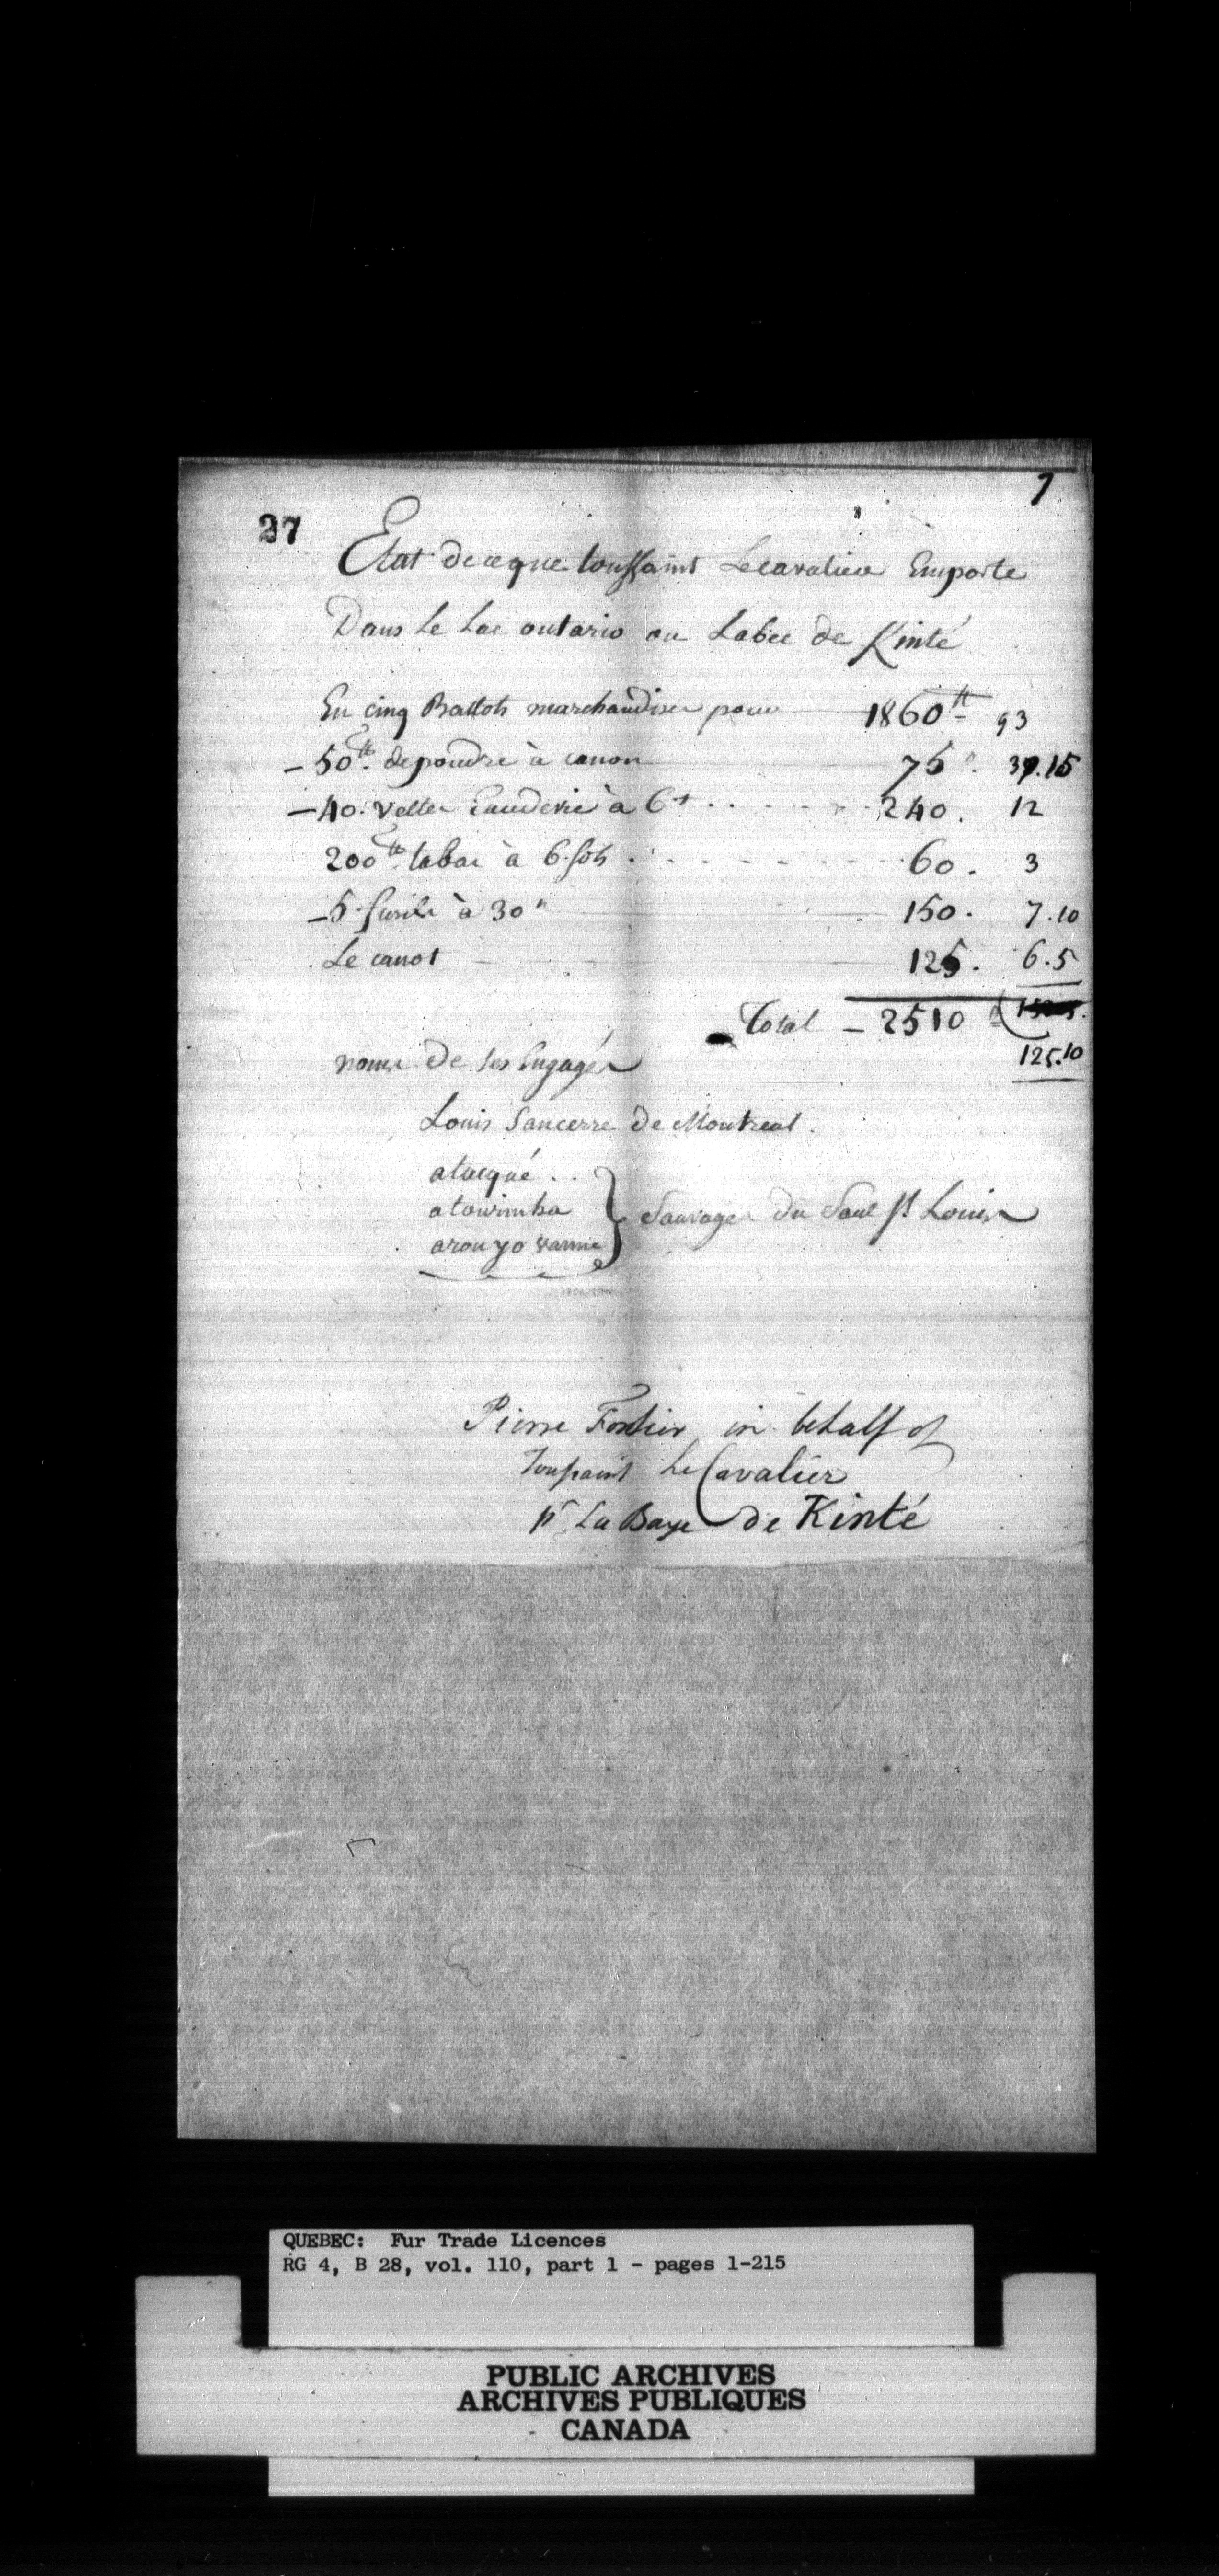 7
27
Etat de ceque toussaint Lecavalier Emporte
Dans Le Lac ontario ou Labee de Kinté
En cinq Ballots marchandises pour 1860 tt 93
- 50 tt. de poudre à canon 75. 3.15
- 40. Veltes Eaudevie à 6 tt . . . . 240. 12
200 tt. tabac à 6. sols . . . . 60. 3
- 5 fusils à 30 " 150. 7.10
Le canot 125. 6.5
Total - 2510
125.10
noms De ses Engagés
Louis Sancerre De Montreal.
atacqué . .
atawimba
arouyo
Sauvages Du Saut St Louis
Pierre Fortier in behalf of
Toussaint Le Cavalier
pr. La Baye de Kinté
QUEBEC: Fur Trade Licences
RG 4, B 28, vol. 110, part 1 - pages 1-215
PUBLIC ARCHIVES
ARCHIVES PUBLIQUES
CANADA